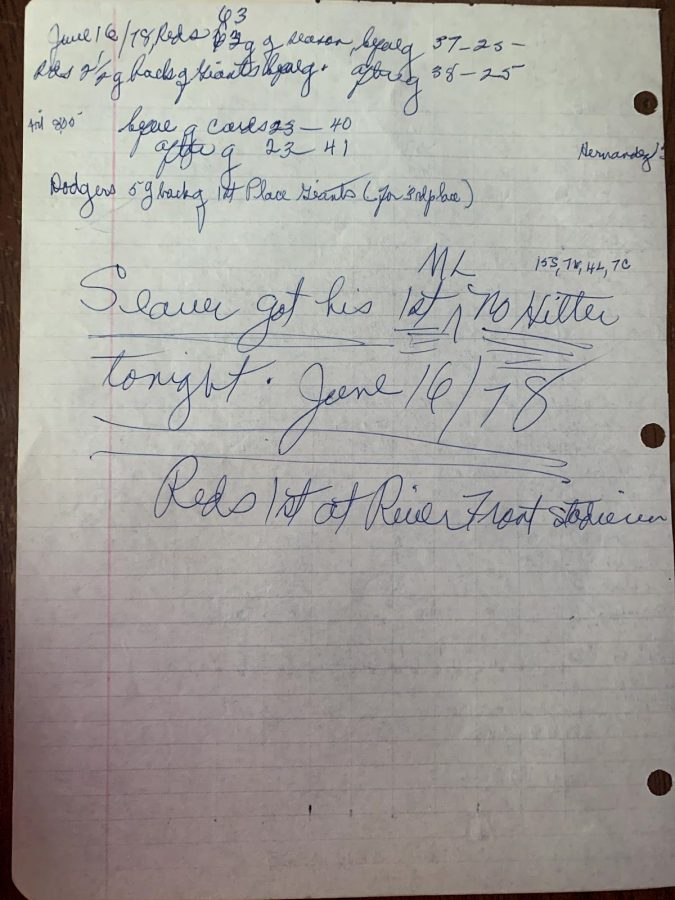 63
June 16/78, Reds 63 g of season, before g 37-25-
Reds 2 1/2 g back of Giants before g. after g 38-25
before g Cards 23-40
after g 23-41
Hernandez
Dodgers 5 g back of 1st Place Giants (for 3rd place)
ML
Seaver got his 1st ^ No Hitter
tonight. June 16/78
Reds 1st at River Front Stadium